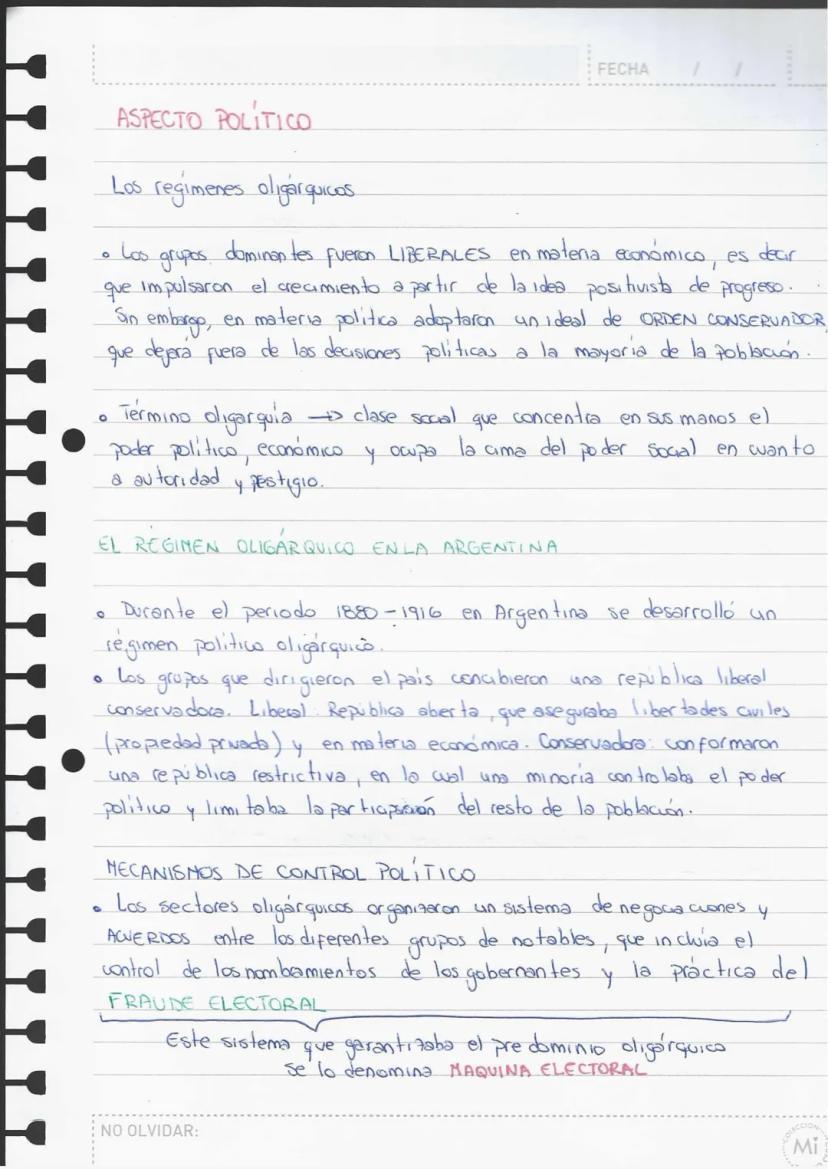 FECHA / /
ASPECTO POLÍTICO
Los regímenes oligárquicos
• Los grupos dominantes fueron LIBERALES en materia económico, es decir
que impulsaron el crecimiento a partir de la idea positivista de progreso.
Sin embargo, en materia política adoptaron un ideal de ORDEN CONSERVADOR,
que dejará fuera de las decisiones políticas a la mayoría de la población.
• Término oligarquía → clase social que concentra en sus manos el
poder político, económico y ocupa la cima del poder social en cuanto
a autoridad y pestigio.
EL RÉGIMEN OLIGÁRQUICO EN LA ARGENTINA
• Durante el periodo 1880-1916 en Argentina se desarrolló un
régimen político oligárquico.
• Los grupos que dirigieron el país concibieron una república liberal
conservadora. Liberal: República abierta, que aseguraba libertades civiles
(propiedad privada) y en materia económica. Conservadora: conformaron
una república restrictiva, en la cual una minoría controlaba el poder
político y limitaba la participación del resto de la población.
MECANISMOS DE CONTROL POLÍTICO
• Los sectores oligárquicos organizaron un sistema de negociaciones y
ACUERDOS entre los diferentes grupos de notables, que incluía el
control de los nombamientos de los gobernantes y la práctica del
FRAUDE ELECTORAL
Este sistema que garantizaba el predominio oligárquico
se lo denomina MAQUINA ELECTORAL
NO OLVIDAR:
COLECCION
Mi